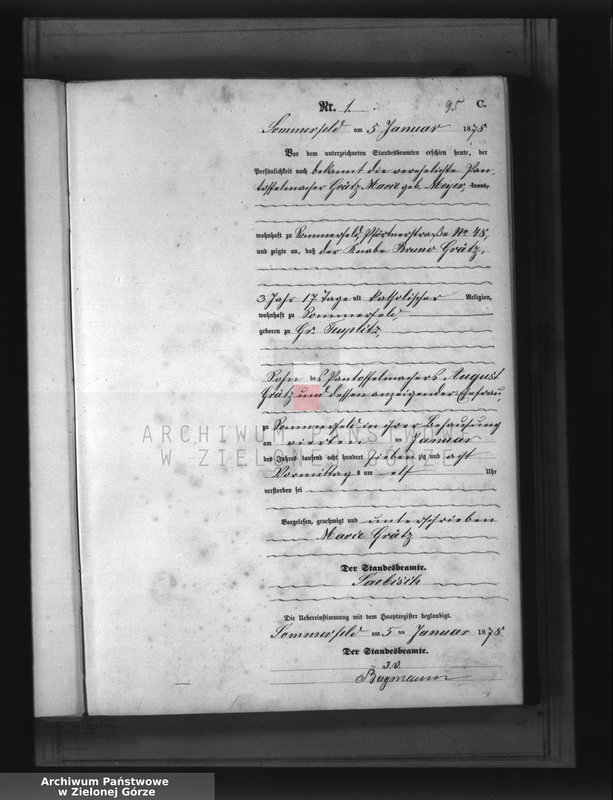 Nr. 1. 95 C.
Sommerfeld am 5 Januar 1878
Vor dem unterzeichneten Standesbeamten erschien heute, der
Persönlichkeit nach bekannt die verehelichte Pan-
toffelmacher Grätz, Marie geb. Meyer, kannt,
wohnhaft zu Sommerfeld, Pförtnerstraße No 48,
und zeigte an, daß der Knabe Bruno Grätz,
3 Jahr 17 Tage alt katholischer Religion,
wohnhaft zu Sommerfeld,
geboren zu Gr. Teuplitz,
Sohn des Pantoffelmachers August
Grätz und dessen anzeigender Ehefrau
zu Sommerfeld in ihrer Behausung
am vierten ten Januar
des Jahres tausend acht hundert siebenzig und acht
Vormittags um elf Uhr
verstorben sei
Vorgelesen, genehmigt und unterschrieben
Marie Grätz
Der Standesbeamte.
Die Uebereinstimmung mit dem Hauptregister beglaubigt.
Sommerfeld am 5 ten Januar 1878
Der Standesbeamte.
I.V.
ARCHIWUM PAŃSTWOWE
W ZIELONEJ GÓRZE
Archiwum Państwowe
w Zielonej Górze